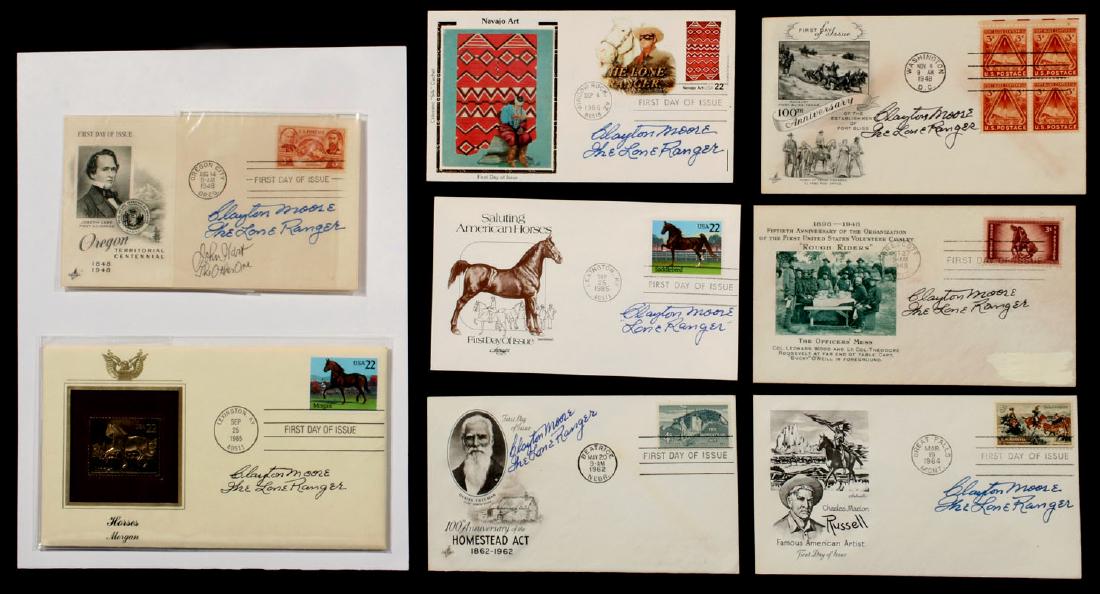 FIRST DAY OF ISSUE
OREGON CITY
AUG 14
9-AM
1948
OREG.
FIRST DAY OF ISSUE
JOSEPH LANE
FIRST GOVERNOR
Oregon
TERRITORIAL
CENTENNIAL
1848
1948
Clayton Moore
The Lone Ranger
John Hart
The Other One
USA 22
Morgan
LEXINGTON, KY
SEP
25
1985
40511
FIRST DAY OF ISSUE
USA 22
Clayton Moore
The Lone Ranger
Horses
Morgan
Navajo Art
Colorano "Silk" Cachet
First Day of Issue
THE LONE
RANGER
Navajo Art USA
22
SEP 4
1986
FIRST DAY OF ISSUE
Clayton Moore
The Lone Ranger
Saluting
American Horses
First Day Of Issue
USA 22
Saddlebred
LEXINGTON, KY
SEP
25
1985
40511
FIRST DAY OF ISSUE
Clayton Moore
Lone Ranger
First Day
of Issue
DANIEL FREEMAN
100th Anniversary of the
HOMESTEAD ACT
1862-1962
Clayton Moore
The Lone Ranger
BEATRICE
MAY 20
9-AM
1962
NEBR.
4¢
FIRST DAY OF ISSUE
FIRST DAY
of Issue
100th
Anniversary
OF THE
ESTABLISHMENT
OF FORT BLISS
WASHINGTON
NOV 5
9 AM
1948
D.C.
FORT BLISS CENTENNIAL
3¢
U.S. POSTAGE
U.S. POSTAGE
Clayton Moore
The Lone Ranger
1898 — 1948
FIFTIETH ANNIVERSARY OF THE ORGANIZATION
OF THE FIRST UNITED STATES VOLUNTEER CAVALRY
"ROUGH RIDERS"
THE OFFICERS' MESS
COL. LEONARD WOOD AND LT. COL. THEODORE
ROOSEVELT AT FAR END OF TABLE. CAPT.
"BUCKY" O'NEILL IN FOREGROUND.
1948
FIRST DAY OF ISSUE
Clayton Moore
The Lone Ranger
Charles Marion
Russell
Famous American Artist
First Day of Issue
GREAT FALLS
MAR
19
1964
MONT.
FIRST DAY OF ISSUE
Clayton Moore
The Lone Ranger